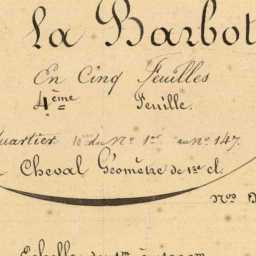 La Barbot
En Cinq Feuilles
4ème Feuille.
uartier du No 1er au no 147.
Cheval Géomètre de 1re cl.
nos
Echelle de 1m à